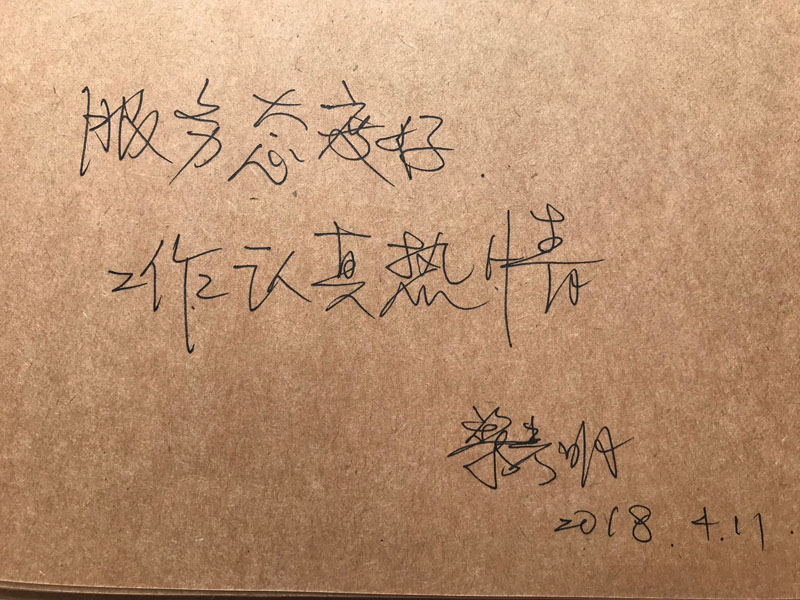 服务态度好
工作认真热情
明
2018.4.11.